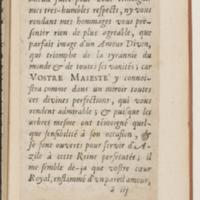 mes tres-humbles respects, ny vous
rendant mes hommages vous pre-
senter rien de plus agreable, que
parfait image d'un Amour Divin,
qui triomphe de la tyrannie du
monde & de toutes ses vanités; car
VOSTRE MAIESTÉ y connoi-
stra comme dans un miroir toutes
ces divines perfections, qui vous
rendent admirable; & puisque les
arbres mesme ont témoigné quel-
que sensibilité à son occasion, &
se sont ouverts pour servir d'A-
zile à cette Reine persecutée; il
me semble de-ja que vostre cœur
Royal, enflammé d'un pareil amour,
a iij